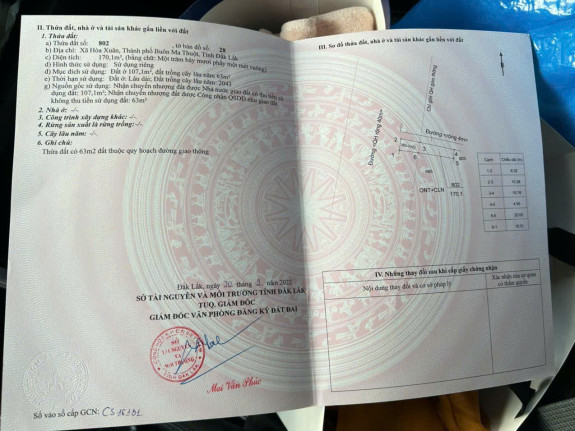 II. Thửa đất, nhà ở và tài sản khác gắn liền với đất
1. Thửa đất:
a) Thửa đất số: 802 , tờ bản đồ số: 28
b) Địa chỉ: Xã Hòa Xuân, Thành phố Buôn Ma Thuột, Tỉnh Đắk Lắk
c) Diện tích: 170,1m², (bằng chữ: Một trăm bảy mươi phẩy một mét vuông)
d) Hình thức sử dụng: Sử dụng riêng
đ) Mục đích sử dụng: Đất ở 107,1m², đất trồng cây lâu năm 63m²
e) Thời hạn sử dụng: Đất ở: Lâu dài; Đất trồng cây lâu năm: 2043
g) Nguồn gốc sử dụng: Nhận chuyển nhượng đất được Nhà nước giao đất có thu tiền sử
dụng đất: 107,1m²; Nhận chuyển nhượng đất được Công nhận QSDĐ như giao đất
không thu tiền sử dụng đất: 63m²
2. Nhà ở: -/-
3. Công trình xây dựng khác: -/-
4. Rừng sản xuất là rừng trồng: -/-
5. Cây lâu năm: -/-
6. Ghi chú:
Thửa đất có 63m2 đất thuộc quy hoạch đường giao thông
Đắk Lắk, ngày năm 2022
SỞ TÀI NGUYÊN VÀ MÔI TRƯỜNG TỈNH ĐẮK LẮK
TUQ. GIÁM ĐỐC
GIÁM ĐỐC VĂN PHÒNG ĐĂNG KÝ ĐẤT ĐAI
SỞ
TÀI NGUYÊN
VÀ
MÔI TRƯỜNG
TỈNH ĐẮK LẮK
Mai Văn Phúc
Số vào sổ cấp GCN: CS 16101
III. Sơ đồ thửa đất, nhà ở và tài sản khác gắn liền với đất
Chỉ giới QH giao thông
Đường rộng 4m
2
3
1
6
ONT+CLN
802
170.1
Cạnh
Chiều dài (m)
1-2
2-3
3-4
4-5
5-6
6-1
IV. Những thay đổi sau khi cấp giấy chứng nhận
Nội dung thay đổi và cơ sở pháp lý
Xác nhận của cơ quan
có thẩm quyền